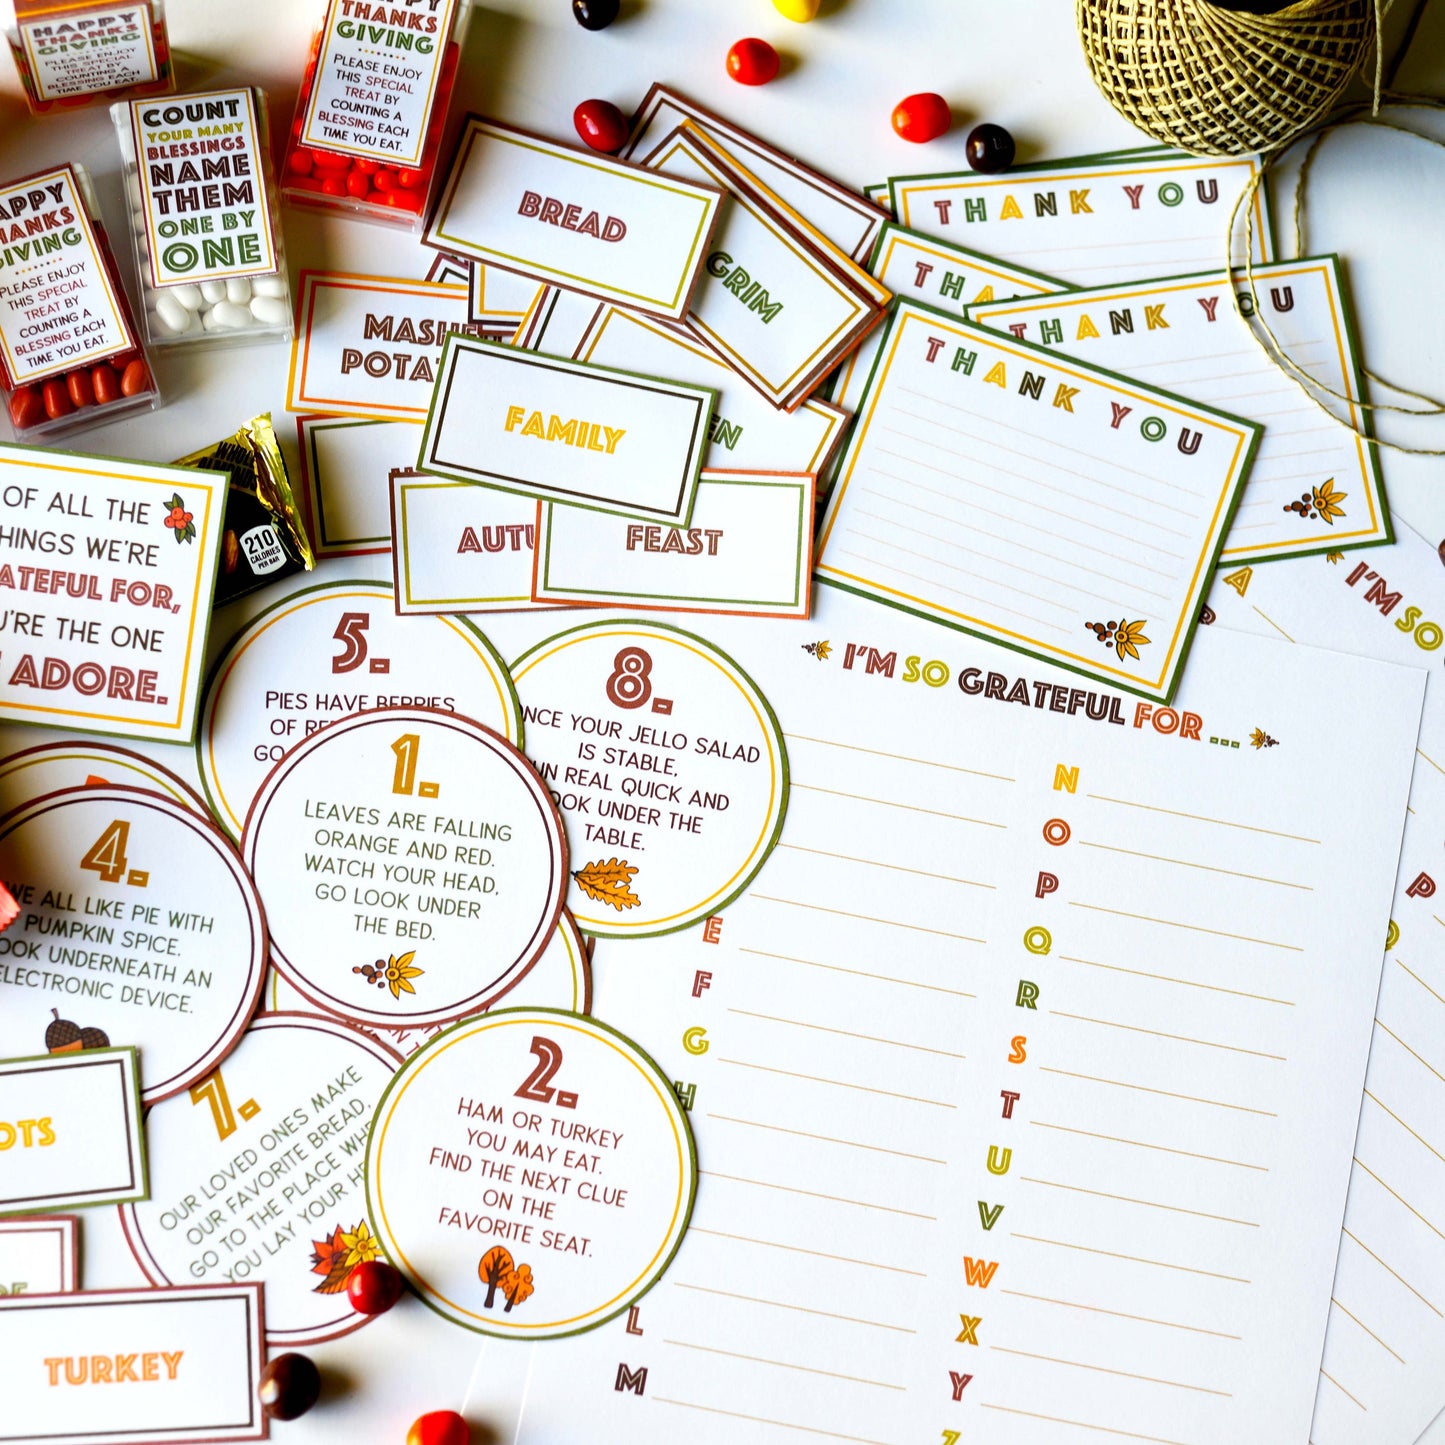 HAPPY
THANKS
GIVING
PLEASE ENJOY
THIS SPECIAL
TREAT BY
COUNTING A
BLESSING EACH
TIME YOU EAT.
COUNT
YOUR MANY
BLESSINGS
NAME
THEM
ONE BY
ONE
HAPPY
THANKS
GIVING
PLEASE ENJOY
THIS SPECIAL
TREAT BY
COUNTING A
BLESSING EACH
TIME YOU EAT.
APPY
HANKS
GIVING
PLEASE ENJOY
THIS SPECIAL
TREAT BY
COUNTING A
BLESSING EACH
TIME YOU EAT.
BREAD
GRIM
MASHE
POTA
FAMILY
EN
AUTU
FEAST
THANK YOU
THA
THANK YOU
THANK YOU
WHOLE
ALMONDS
210
CALORIES
PER BAR
OF ALL THE
HINGS WE'RE
ATEFUL FOR,
U'RE THE ONE
ADORE.
5.
PIES HAVE BERRIES
OF RE
GO
8.
NCE YOUR JELLO SALAD
IS STABLE,
UN REAL QUICK AND
OOK UNDER THE
TABLE.
1.
LEAVES ARE FALLING
ORANGE AND RED.
WATCH YOUR HEAD,
GO LOOK UNDER
THE BED.
4.
WE ALL LIKE PIE WITH
PUMPKIN SPICE.
OOK UNDERNEATH AN
ELECTRONIC DEVICE.
7.
OUR LOVED ONES MAKE
OUR FAVORITE BREAD,
GO TO THE PLACE WHE
YOU LAY YOUR HE
2.
HAM OR TURKEY
YOU MAY EAT.
FIND THE NEXT CLUE
ON THE
FAVORITE SEAT.
OTS
TURKEY
I'M SO GRATEFUL FOR ...
E
F
G
H
L
M
N
O
P
Q
R
S
T
U
V
W
X
Y
Z
I'M SO
P